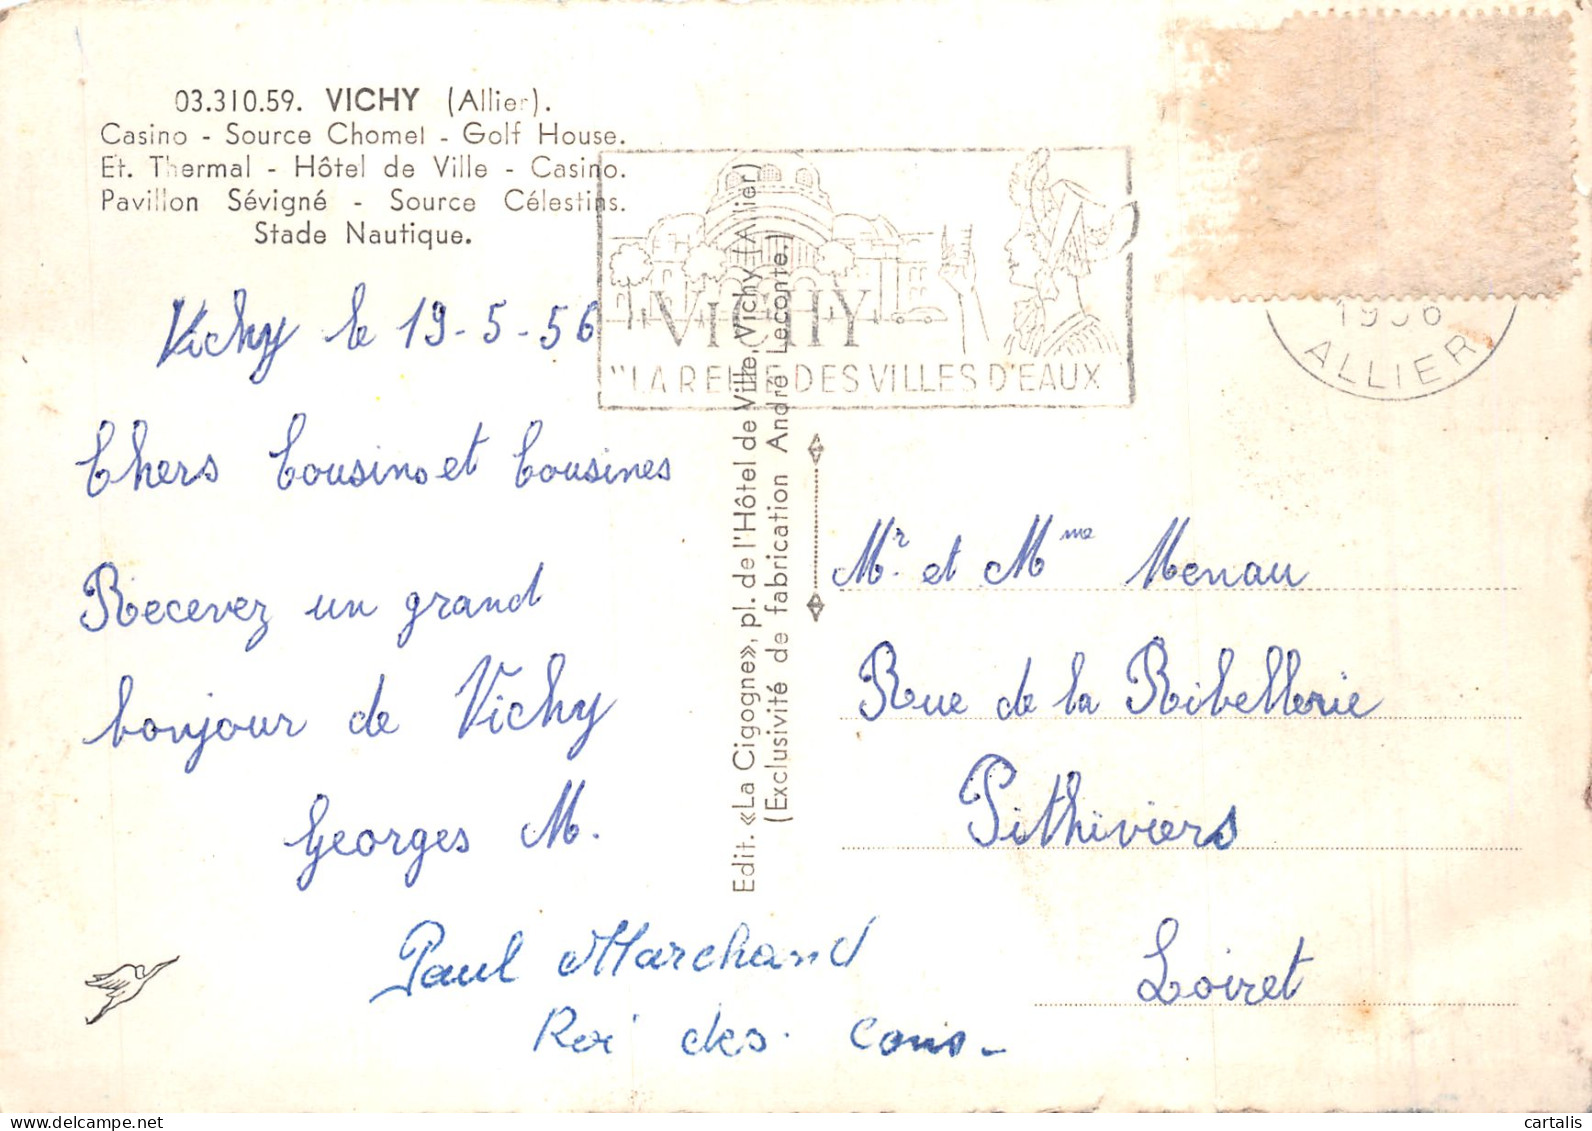 03.310.59. VICHY (Allier).
Casino - Source Chomel - Golf House.
Et. Thermal - Hôtel de Ville - Casino.
Pavillon Sévigné - Source Célestins.
Stade Nautique.
VICHY
"LA REINE DES VILLES D'EAUX
1956
ALLIER
Vichy le 19-5-56
Chers Cousins et Cousines
Recevez un grand
bonjour de Vichy
Georges M.
Paul Marchand
Roi des Cons -
Edit. «La Cigogne», pl. de l'Hôtel de Ville, Vichy (Allier)
(Exclusivité de fabrication André Leconte.)
Mr. et Mme Menau
Rue de la Ribellerie
Pithiviers
Loiret
cartalis
delcampe.net